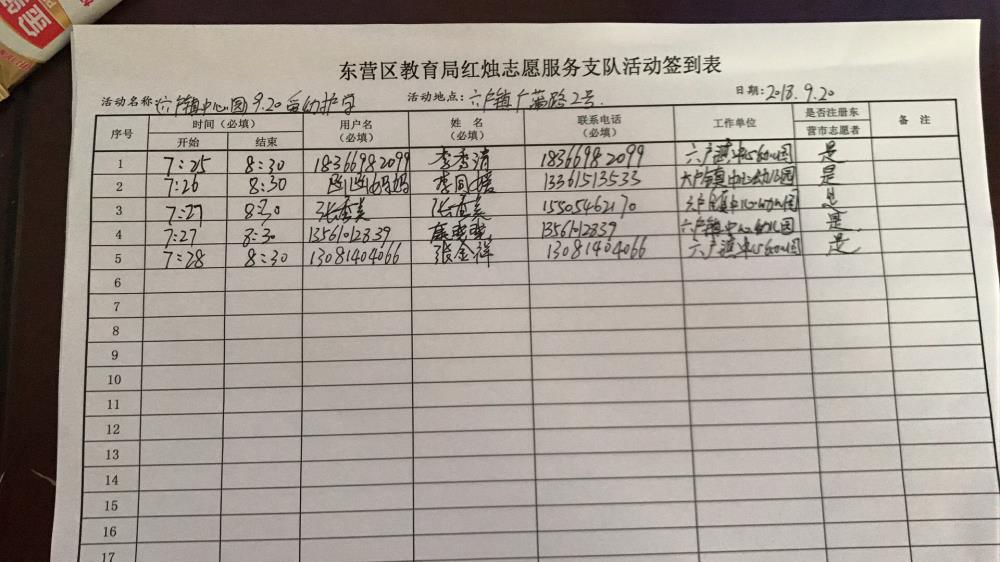 东营区教育局红烛志愿服务支队活动签到表
活动名称：六户镇中心园9.20 幼护学 活动地点：六户镇广蒲路2号. 日期：2018.9.20
序号 时间（必填） 用户名（必填） 姓 名（必填） 联系电话（必填） 工作单位 是否注册东营市志愿者 备 注
开始 结束
1 7:25 8:30 18366982099 李秀清 18366982099 六户镇中心幼儿园 是
2 7:26 8:30 妈妈 李同媛 13361513533 六户镇中心幼儿园 是
3 7:27 8:30 张香美 张香美 15505462170 六户镇中心幼儿园 是
4 7:27 8:30 13561012839 13561012839 六户镇中心幼儿园 是
5 7:28 8:30 13081404066 张金祥 13081404066 六户镇中心幼儿园 是
6
7
8
9
10
11
12
13
14
15
16
17